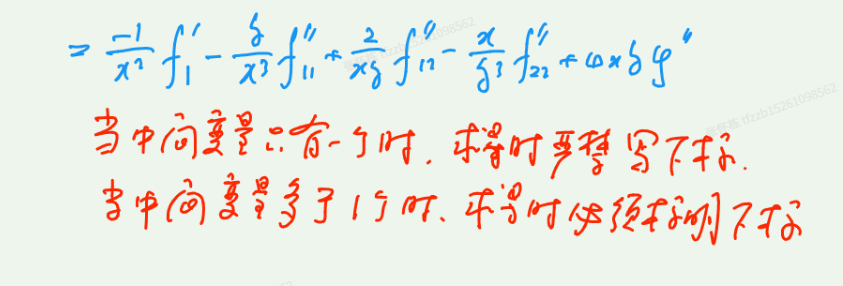 = \frac{-1}{x^2} f_1' - \frac{y}{x^3} f_{11}'' + \frac{2}{xy} f_{12}'' - \frac{x}{y^3} f_{22}'' + 4xy φ''
当中间变量只有一个时，求导时严禁写下标.
当中间变量多于1个时、求导时必须标明下标